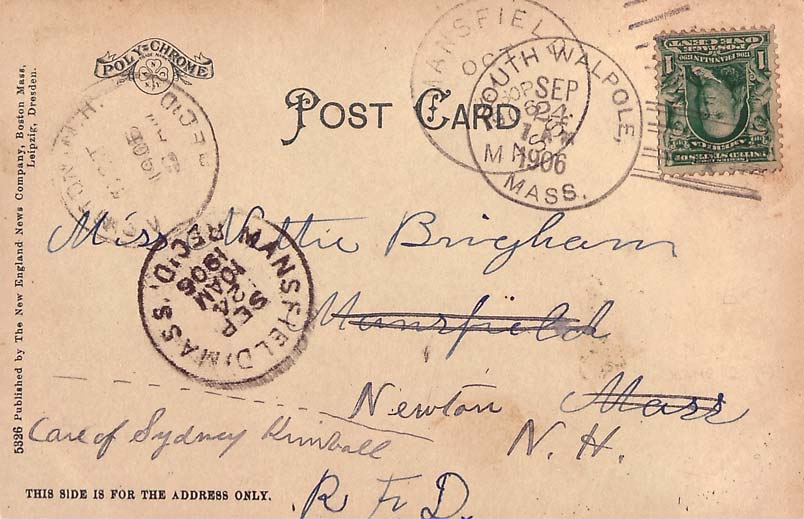 POLY-CHROME
POST CARD
MANSFIELD
OCT
SOUTH WALPOLE,
SEP
24
1906
MASS.
ONE CENT
1 1
REC'D
1906
MANSFIELD, MASS.
REC'D
SEP
24
10AM
1906
Miss Nettie Brigham
Mansfield
Mass
Newton
N.H.
Care of Sydney Kimball
R F D.
THIS SIDE IS FOR THE ADDRESS ONLY.
5326 Published by The New England News Company, Boston Mass,
Leipzig, Dresden.